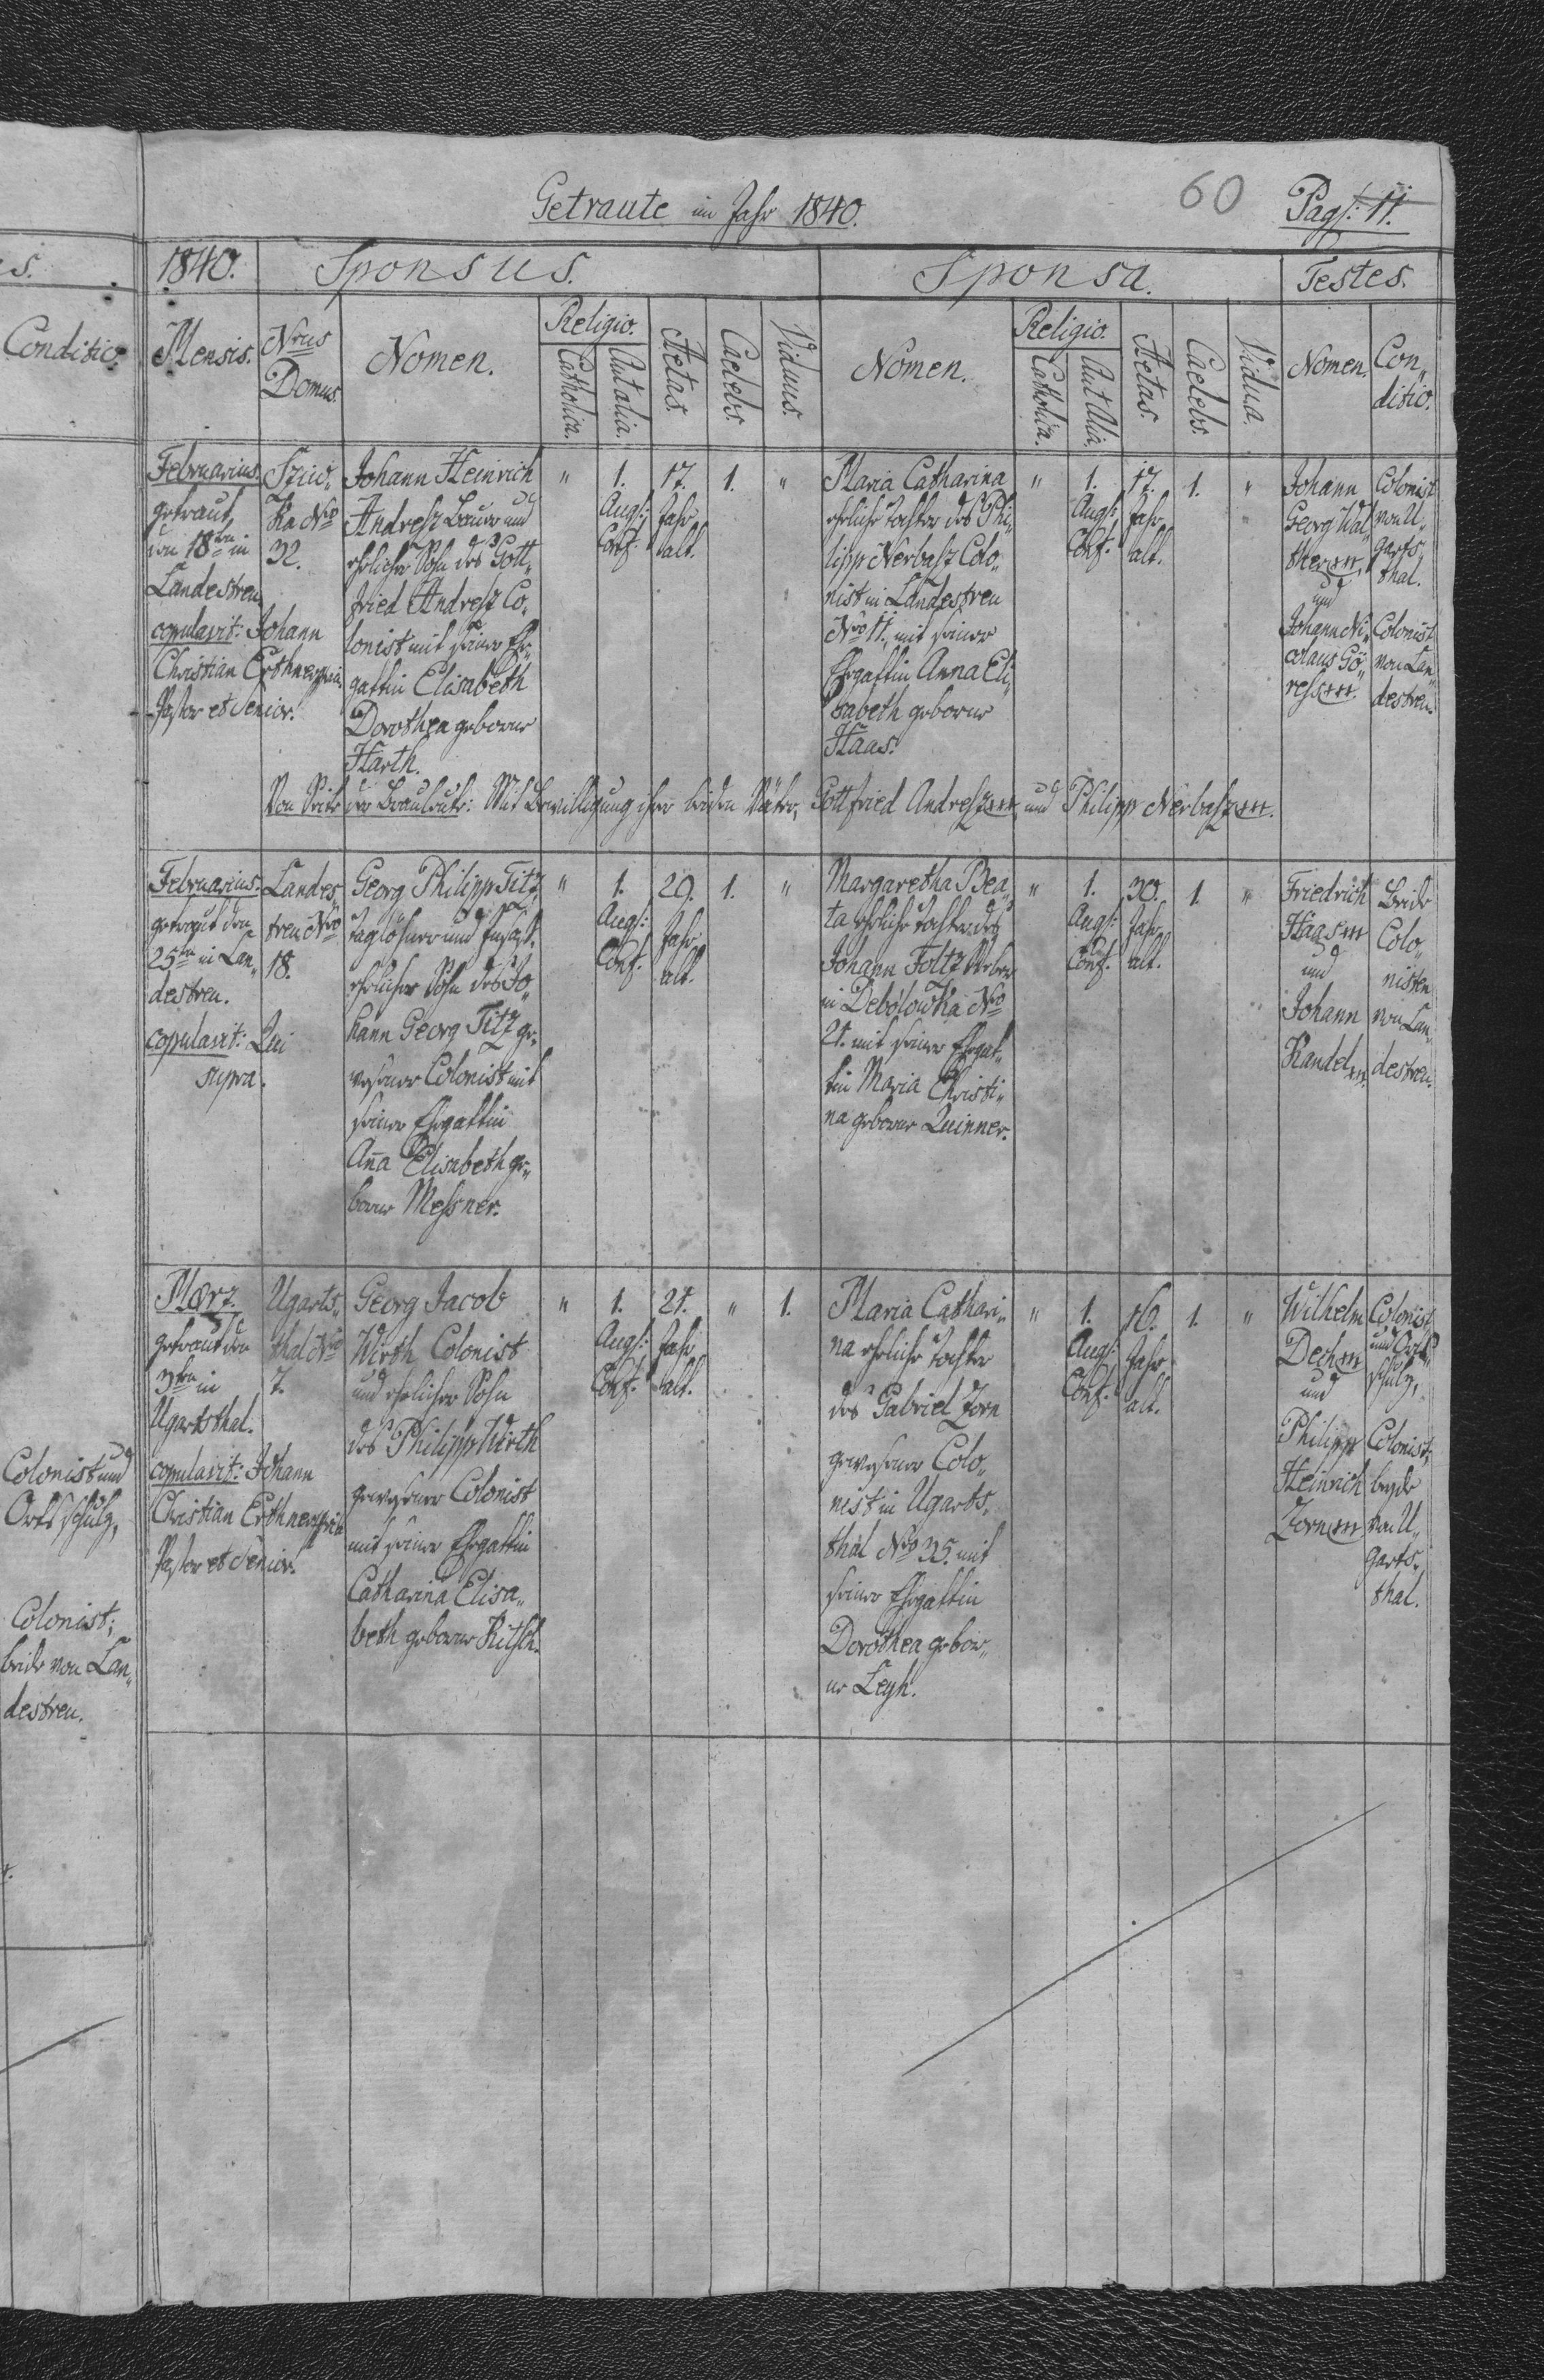 Getraute im Jahr 1840.
60
Pag: 11.
1840.
Sponsus.
Sponsa.
Testes.
Mensis.
Nrus Domus.
Nomen.
Religio.
Catholica.
Aut alia.
Aetas.
Caelebs.
Viduus.
Nomen.
Religio.
Catholica.
Aut Alia.
Aetas.
Caelebs.
Vidua.
Nomen.
Con„
ditio.
Februarius.
getraut
den 18ten in
Landestreu
copulavit: Johann
Christian Erthner
Pastor et Senior.
Sziw„
ka Nro
32.
Johann Heinrich
Andresz Bauer und
ehelicher Sohn des Gott„
fried Andresz Co„
lonist mit seiner Ehe„
gattin Elisabeth
Dorothea geborne
Harth.
"
1.
Augs:
Conf:
17.
Jahr
alt.
1.
"
Maria Catharina
eheliche Tochter des Phi„
lipp Nerbasz Colo„
nist in Landestreu
Nro 11. mit seiner
Ehegattin Anna Eli„
sabeth geborne
Haas.
"
1.
Augs:
Conf:
17.
Jahr
alt.
1.
"
Johann
Georg Wal„
ther
und
Johann Ni„
colaus Gö„
ress
Colonist
von U„
garts„
thal.
Colonist
von Lan„
destreu.
Von Seite der Brautleute: Mit Bewilligung ihrer beiden Väter, Gottfried Andresz und Philipp Nerbasz
Februarius.
getraut den
25ten in Lan„
destreu.
copulavit: Qui
supra.
Landes„
treu Nro
18.
Georg Philipp Titz,
Taglöhner und Insasz.
ehelicher Sohn des Jo„
hann Georg Titz ge„
wesener Colonist mit
seiner Ehegattin
Anna Elisabeth ge„
borne Messner.
"
1.
Augs:
Conf:
29.
Jahr
alt.
1.
"
Margaretha Bea„
ta eheliche Tochter des
Johann Foltz Weber
in Debolowka Nro
21. mit seiner Ehegat„
tin Maria Christi„
na geborne Quinner.
"
1.
Augs:
Conf:
30.
Jahr
alt.
1.
"
Friedrich
Haas
und
Johann
Kandel
Beide
Colo„
nisten
von Lan„
destreu.
Maerz.
getraut den
3ten in
Ugartsthal.
copulavit: Johann
Christian Erthner
Pastor et Senior.
Ugarts„
thal Nro
7.
Georg Jacob
Wirth Colonist
und ehelicher Sohn
des Philipp Wirth
gewesener Colonist
mit seiner Ehegattin
Catharina Elisa„
beth geborne Kitsch.
"
1.
Augs:
Conf:
21.
Jahr
alt.
"
1.
Maria Cathari„
na eheliche Tochter
des Gabriel Zorn
gewesener Colo„
nist in Ugarts„
thal Nro 35. mit
seiner Ehegattin
Dorothea gebor„
ne Leyh.
"
1.
Augs:
Conf:
16.
Jahr
alt.
1.
"
Wilhelm
Dech
und
Philipp
Heinrich
Zorn
Colonist,
und Orts„
schulz,
Colonist;
beyde
von U„
garts„
thal.
Conditio.
Colonist und
Ortsschulz,
Colonist;
beide von Lan„
destreu.